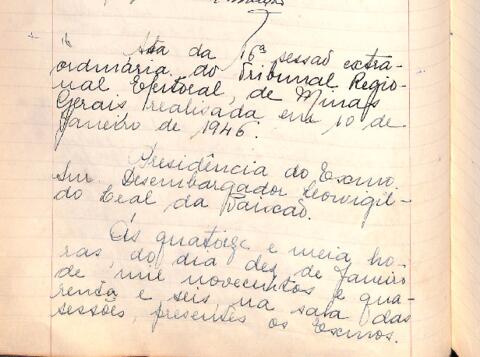 16
Ata da 16ª sessão extra-
ordinária do Tribunal Regio-
nal Eleitoral, de Minas
Gerais realisada em 10 de
Janeiro de 1946.
Presidência do Exmo.
Snr. Desembargador Leovigil-
do Leal da Paixão.
Ás quatorze e meia ho-
ras, do dia dez de Janeiro
de mil novecentos e qua-
renta e seis, na sala das
sessões, presentes os Exmos.